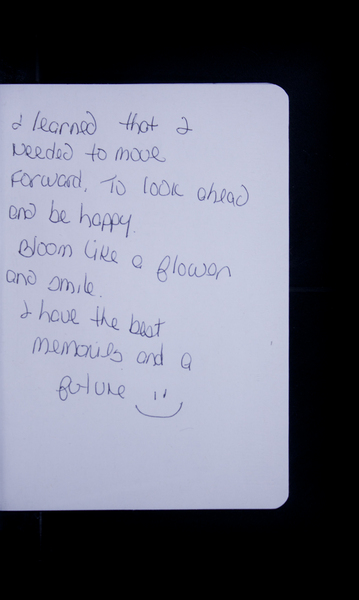 I learned that I
needed to move
forward. To look ahead
and be happy.
Bloom like a flower
and smile.
I have the best
memories and a
future :)